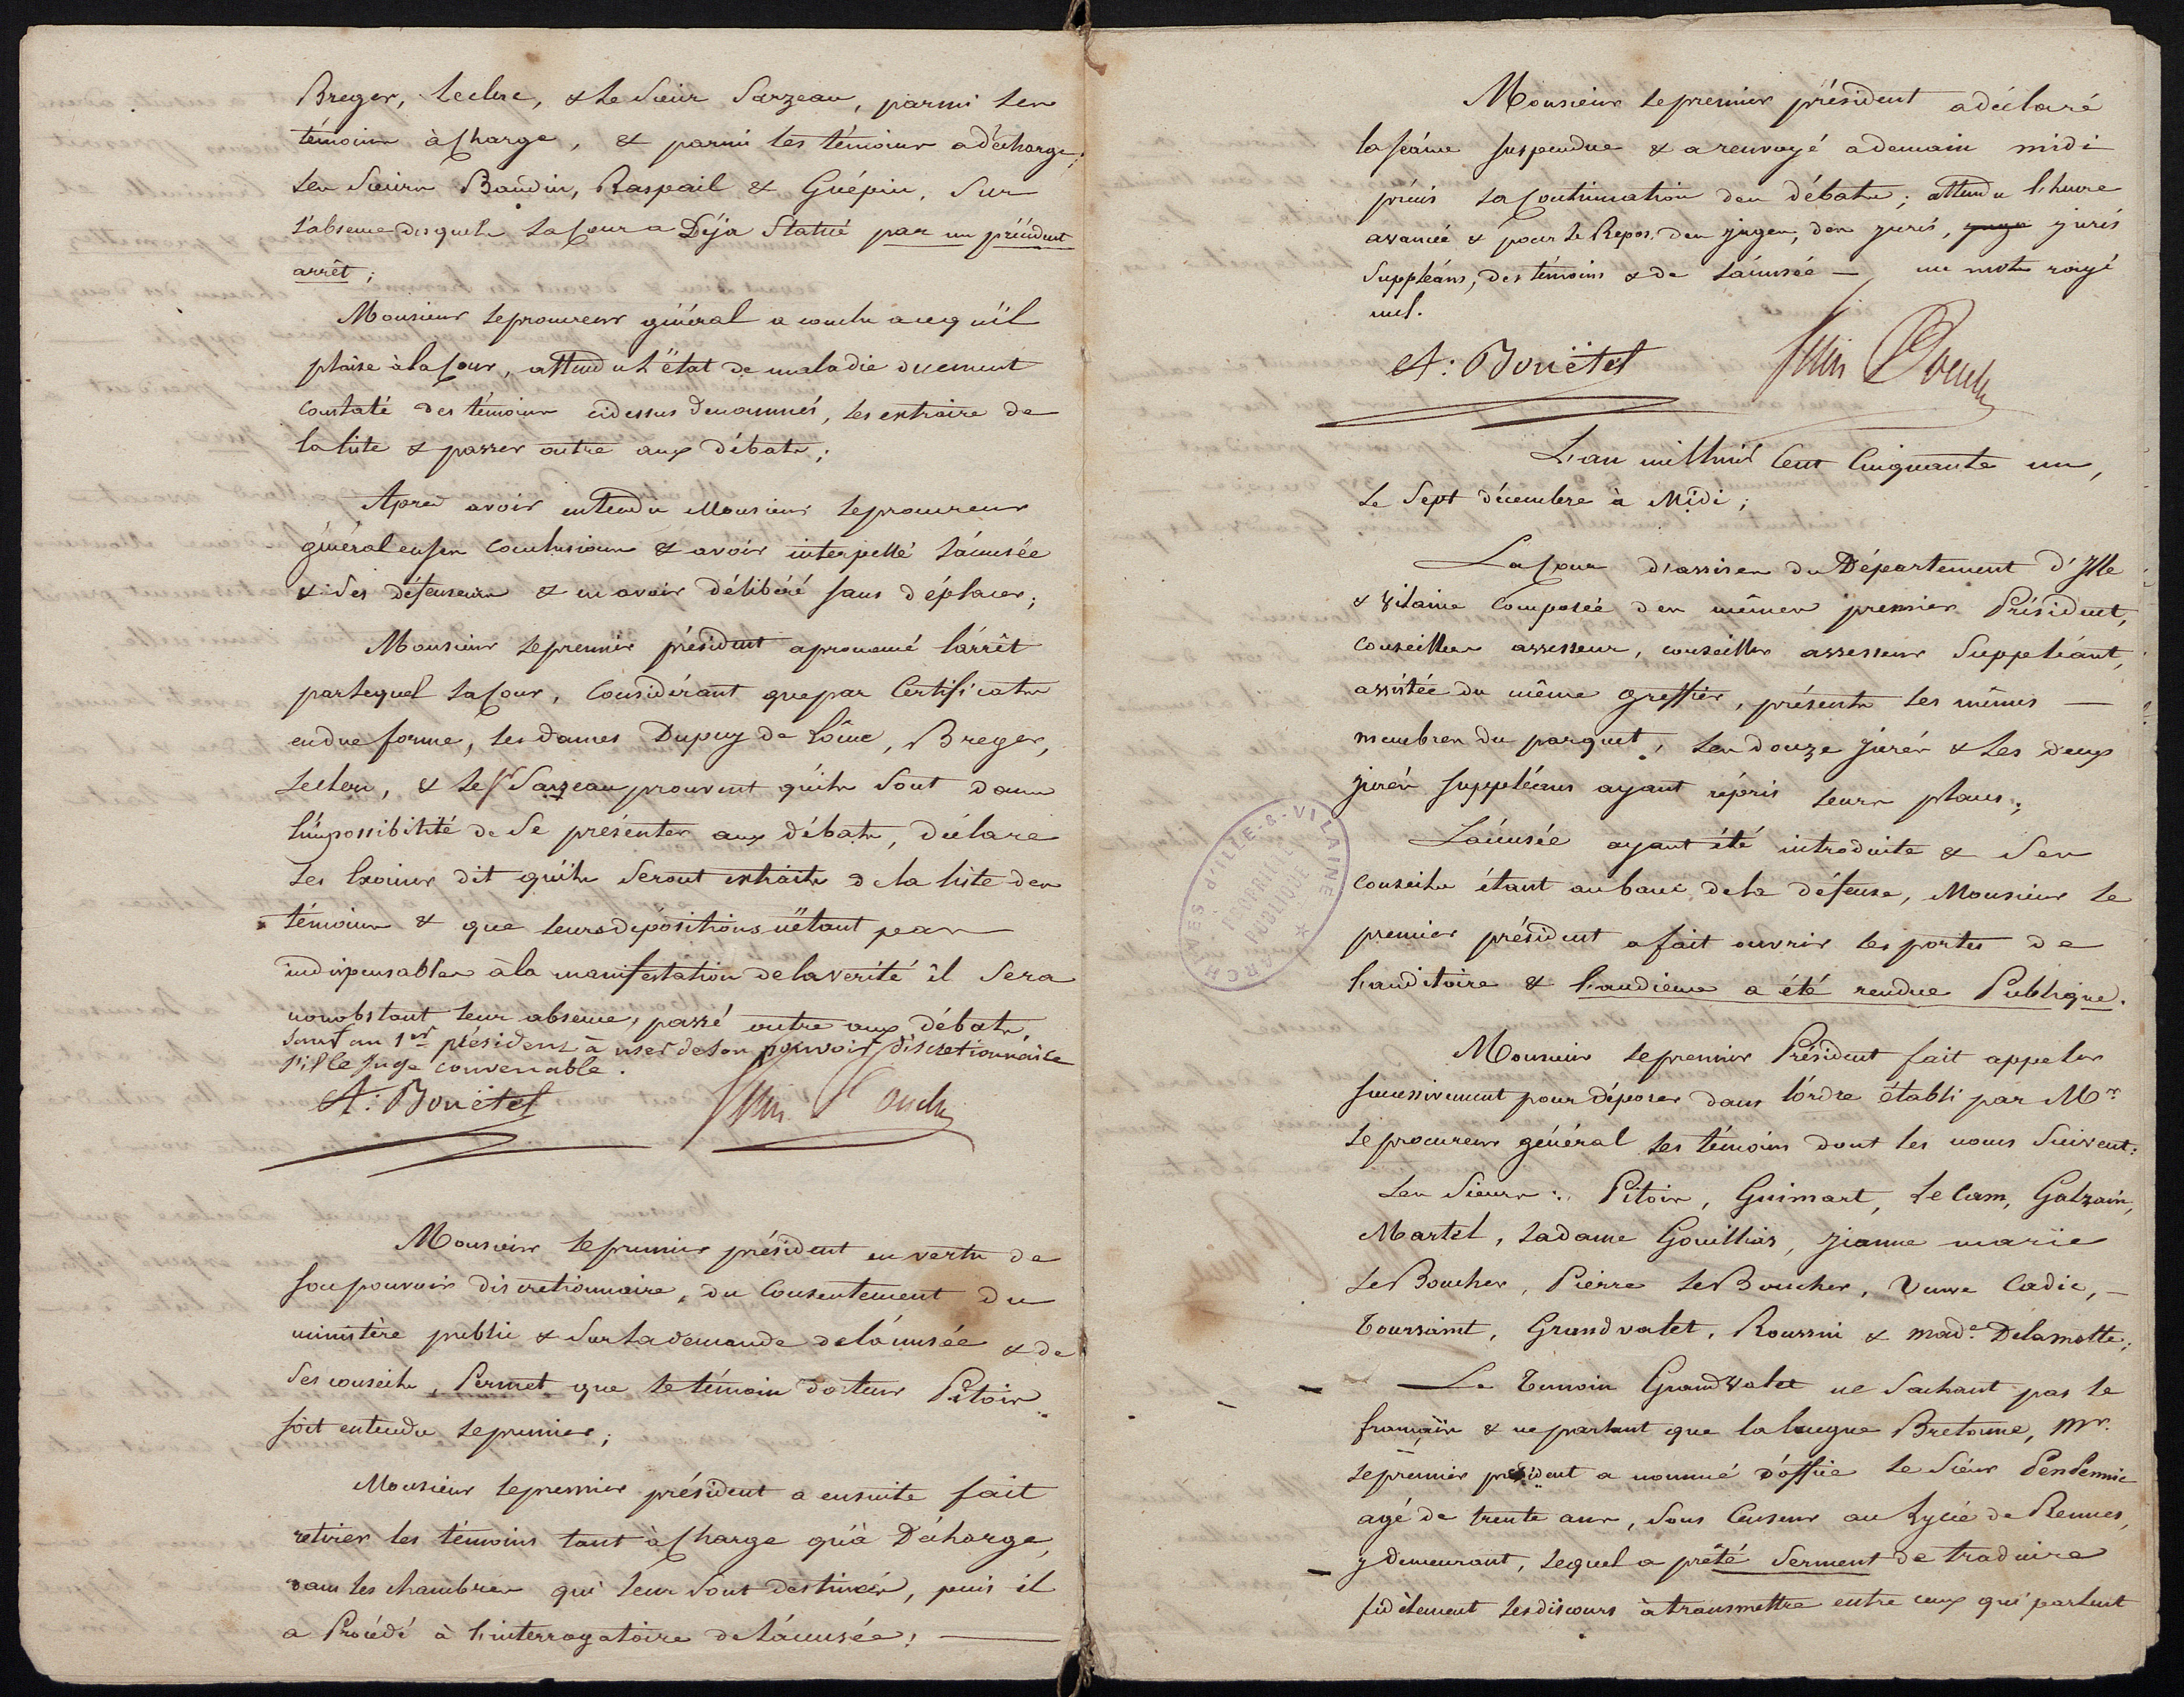 Breger, Leclerc, & le sieur Sarzeau, parmi les
témoins à charge, & parmi les témoins a décharge;
les sieurs Baudin, Raspail & Guépin, sur
l'absence desquels la Cour a Déja Statué par un précédent
arrêt;
Monsieur le procureur général a conclu a ce qu'il
plaise à la Cour, attendu l'état de maladie duement
constaté des témoins cidessus denommés, les extraire de
la liste & passer outre aux débats;
Apres avoir entendu Monsieur le procureur
général en ses conclusions & avoir interpellé l'accusée
& ses défenseurs & en avoir délibéré sans déplacer;
Monsieur le premier président a prononcé l'arrêt
par lequel la Cour, Considérant que par Certificats
en due forme, les dames Dupuy de Lôme, Breger,
Leclerc, & le Sr Sarzeau prouvent qu'ils sont dans
l'impossibilité de se présenter aux débats, déclare
les excuser dit qu'ils seront extraits de la liste des
témoins & que leurs dépositions n'étant pas
indispensables à la manifestation de la verité il sera
nonobstant leur absence, passé outre aux débats,
sauf au 1er président à user de son pouvoir discretionnaire
s'il le juge convenable.
A: Bouëtel
Monsieur le premier président en vertu de
son pouvoir discretionnaire, du Consentement du
ministère public & sur la demande de l'accusée & de
ses conseils, Permet que le témoin docteur Pitoir
soit entendu le premier;
Monsieur le premier président a ensuite fait
retirer les témoins tant à Charge qu'à Décharge,
dans les chambres qui leur sont destinées, puis il
a Procédé à l'interrogatoire de l'accusée;
Monsieur le premier président a déclaré
la séance suspendue & a renvoyé a demain midi
précis la Continuation des débats; attendu l'heure
avancée & pour le Repos des juges, des jurés, juge jurés
Suppléans, des témoins & de l'accusée — un mots rayé
nul.
A: Bouëtel
L'an mil huit Cent Cinquante un,
le Sept décembre à Midi;
La Cour d'assises du Département d'Ille
& Vilaine Composée des mêmes premier Président,
Conseillers assesseurs, conseiller assesseur Suppléant,
assistée du même greffier, présents les mêmes —
membres du parquet, les douze jurés & les deux
jurés suppléans ayant répris leurs places;
L'accusée ayant été introduite & ses
Conseils étant au banc de la défense, Monsieur le
premier président a fait ouvrir les portes de
l'auditoire & l'audience a été rendue Publique.
ARCHIVES d'ILLE-&-VILAINE
PROPRIÉTÉ
PUBLIQUE
Monsieur le premier Président fait appeler
successivement pour déposer dans l'ordre établi par Mr
le procureur général les témoins dont les noms suivent:
Les Sieurs: Pitoir, Guimart, Le Cam, Galzain,
Martel, la dame Gouilhiar, jeanne marie
Le Boucher, Pierre Le Boucher, Veuve Cadic, —
Toursaint, Grandvalet, Roussin & made Delamotte;
Le Temoin Grandvalet ne sachant pas le
français & ne parlant que la langue Bretonne, Mr.
le premier president a nommé d'office le Sieur
agé de trente ans, sous Censeur au Lycée de Rennes,
y demeurant, lequel a prêté serment de traduire
fidèlement les discours à transmettre entre ceux qui parlent